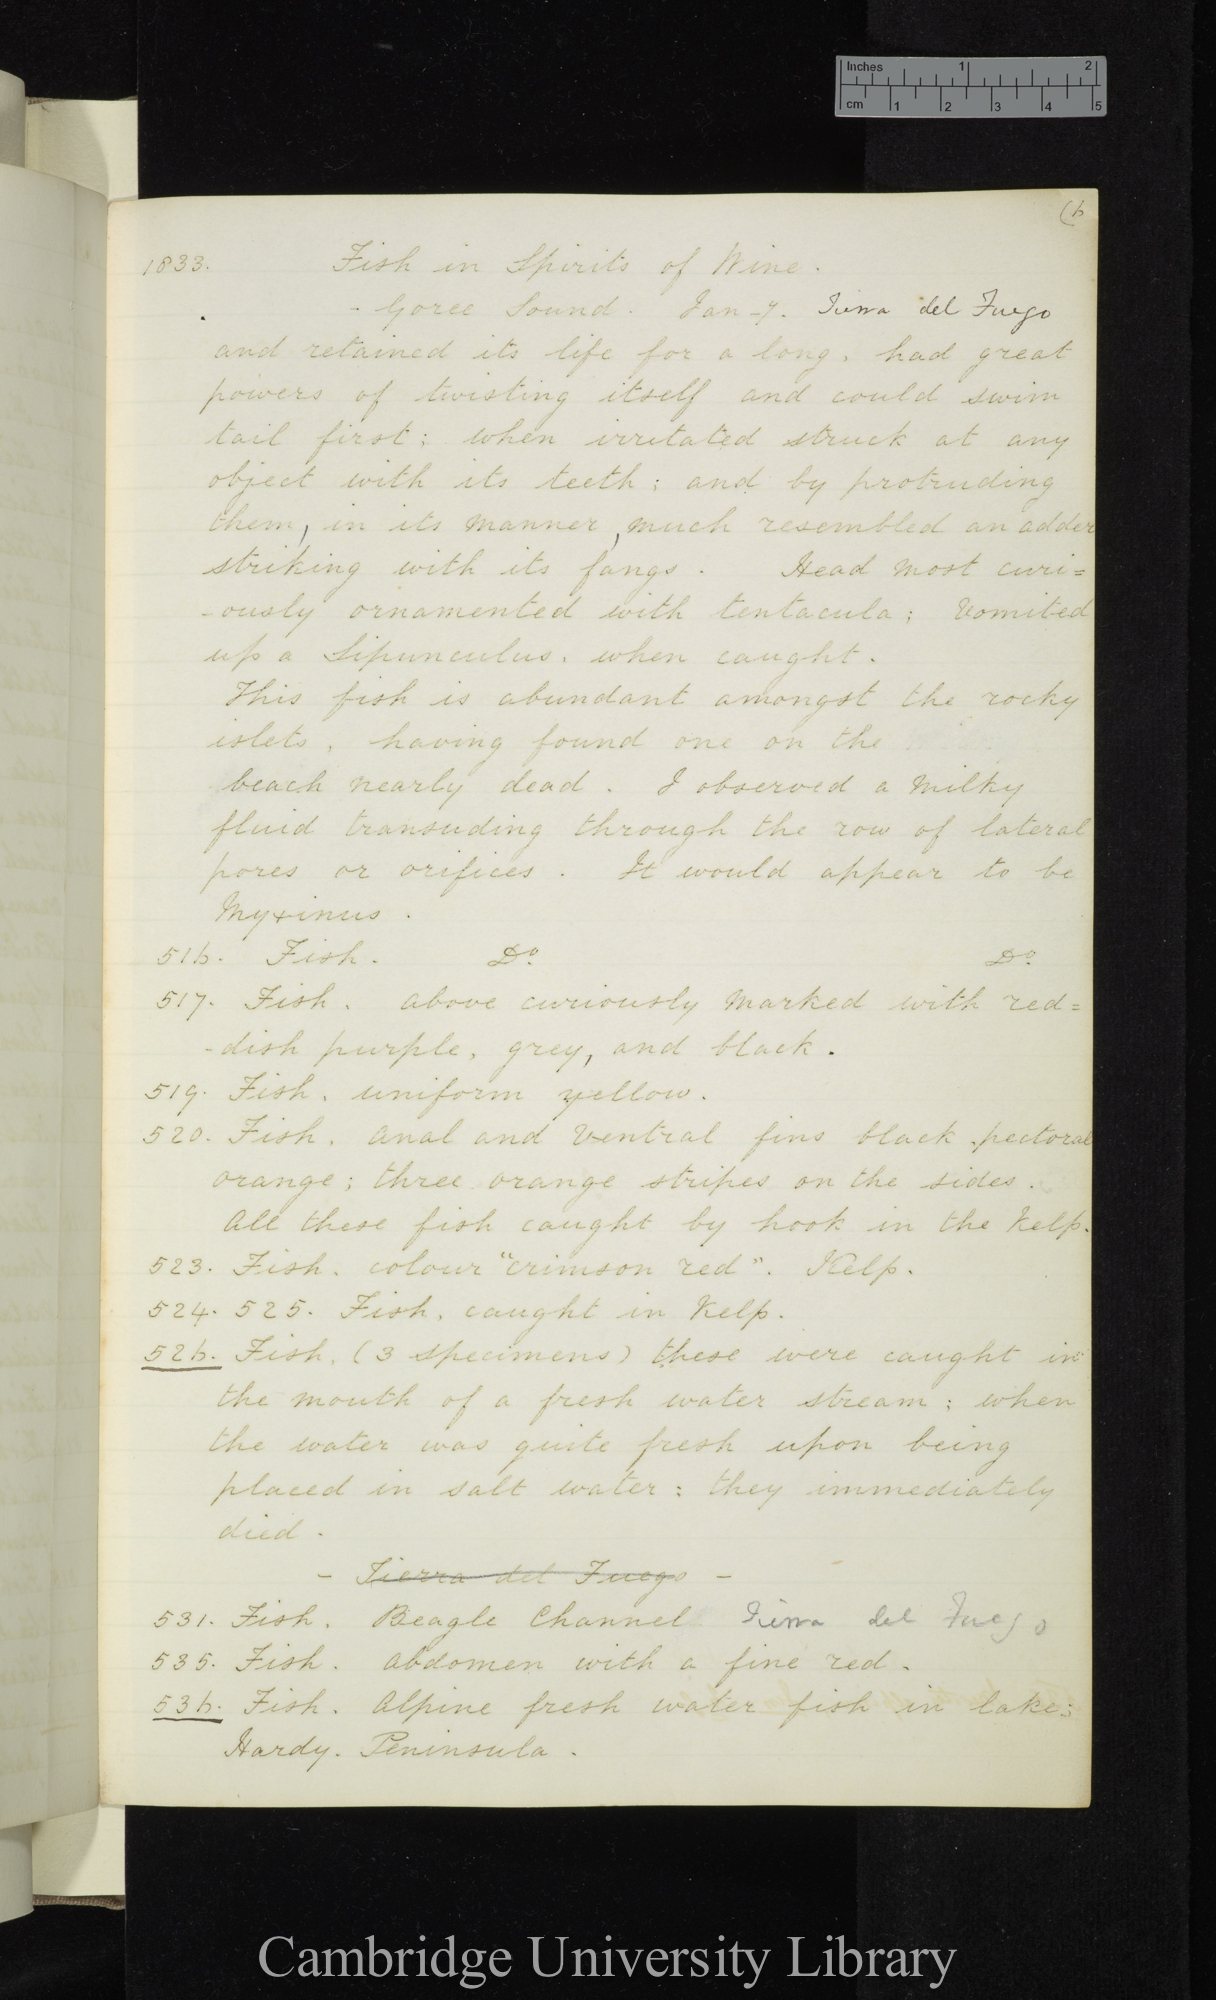 Inches 1 2
cm 1 2 3 4 5
(6
1833. Fish in Spirits of Wine.
- Goree Sound. Jan - 7. Tierra del Fuego
and retained its life for a long. had great
powers of twisting itself and could swim
tail first; when irritated struck at any
object with its teeth; and by protruding
them, in its manner, much resembled an adder
striking with its fangs. Head most curi=
-ously ornamented with tentacula; Vomited
up a Sipunculus. when caught.
This fish is abundant amongst the rocky
islets, having found one on the
beach nearly dead. I observed a milky
fluid transuding through the row of lateral
pores or orifices. It would appear to be
Myxinus.
516. Fish. Do. Do.
517. Fish. above curiously marked with red=
-dish purple, grey, and black.
519. Fish. uniform yellow.
520. Fish. anal and ventral fins black. pectoral
orange; three orange stripes on the sides.
All these fish caught by hook in the Kelp.
523. Fish. colour "crimson red". Kelp.
524. 525. Fish. caught in Kelp.
526. Fish. (3 specimens) these were caught in
the mouth of a fresh water stream; when
the water was quite fresh upon being
placed in salt water: they immediately
died.
- Tierra del Fuego -
531. Fish. Beagle Channel Tierra del Fuego
535. Fish. abdomen with a fine red.
536. Fish. Alpine fresh water fish in lake;
Hardy. Peninsula.
Cambridge University Library